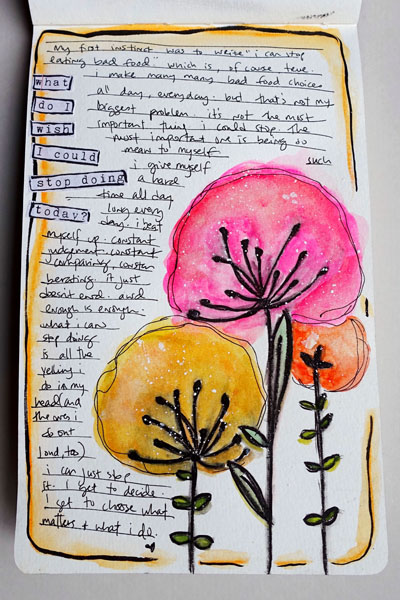 My first instinct was to write "i can stop
eating bad food" which is, of course true.
i make many many bad food choices
all day, everyday. but that's not my
biggest problem. it's not the most
important thing i could stop. the
most important one is being so
mean to myself.
i give myself such
a hard
time all day
long every
day. i beat
myself up. constant
judgement. constant
comparing. constant
berating. it just
doesn't end. and
enough is enough.
what i can
stop doing
is all the
yelling i
do in my
head (and
the ones i
do out
loud, too)
i can just stop
it. I get to decide.
I get to choose what
matters + what i do.
what
do I
wish
I could
stop doing
today?